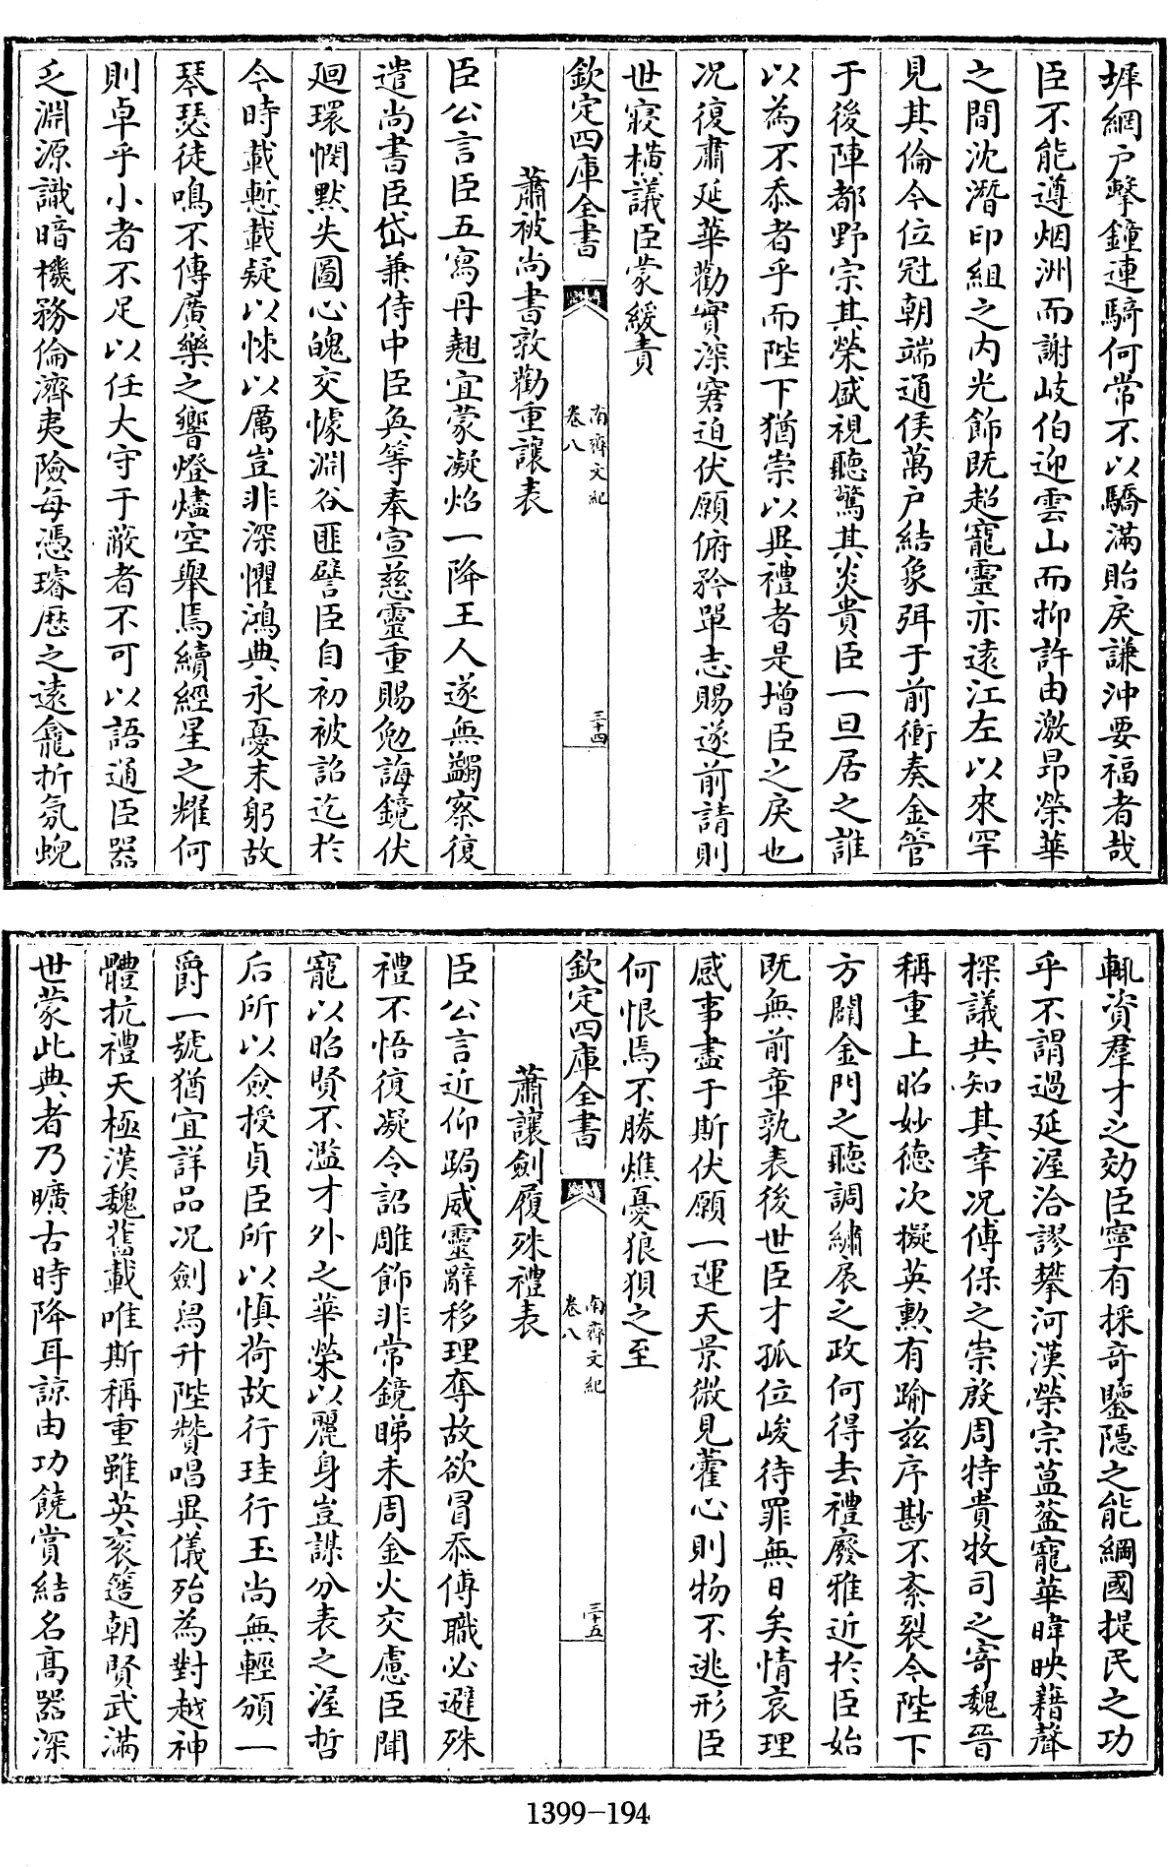 墀網户擊鐘連騎何常不以驕滿貽戾謙沖要福者哉
臣不能遵烟洲而謝岐伯迎雲山而抑許由激昂榮華
之間沈潛印組之内光飾既超寵靈亦逺江左以來罕
見其倫今位冠朝端通侯萬户結象弭于前衝奏金管
于後陣都野宗其榮盛視聽驚其炎貴臣一旦居之誰
以為不忝者乎而陛下猶崇以異禮者是增臣之戾也
况復肅延華勸實深窘迫伏願俯矜單志賜遂前請則
世寢横議臣蒙緩責
欽定四庫全書
南齊文紀
卷八
三十四
蕭被尚書敦勸重讓表
臣公言臣五寫丹翹宜蒙凝炤一降王人遂無蠲察復
遣尚書臣岱兼侍中臣奐等奉宣慈靈重賜勉誨鏡伏
廻環憫黙失圖心魄交懅淵谷匪譬臣自初被詔迄於
今時載慙載疑以悚以厲豈非深懼鴻典永憂末躬故
琴瑟徒鳴不傳廣樂之響燈燼空舉焉續經星之耀何
則卓乎小者不足以任大守于蔽者不可以語通臣器
乏淵源識暗機務倫濟夷險每憑璿厯之逺龕折氛蜺
輒資羣才之効臣寧有採奇鑒隱之能綱國提民之功
乎不謂過延渥洽謬攀河漢榮宗葢寵華暐映藉聲
探議共知其幸况傅保之崇啟周特貴牧司之寄魏晉
稱重上昭妙德次擬英勲有踰兹序尠不紊裂今陛下
方闢金門之聽調繡扆之政何得去禮廢雅近於臣始
既無前章孰表後世臣才孤位峻待罪無日矣情哀理
感事盡于斯伏願一運天景微見藿心則物不逃形臣
何恨焉不勝憔憂狼狽之至
欽定四庫全書
南齊文紀
卷八
三十五
蕭讓劍履殊禮表
臣公言近仰跼威靈辭移理奪故欲冒忝傅職必避殊
禮不悟復凝令詔雕飾非常鏡睇未周金火交慮臣聞
寵以昭賢不濫才外之華榮以麗身豈謀分表之渥哲
后所以僉授貞臣所以慎荷故行珪行玉尚無輕頒一
爵一號猶宜詳品况劍舄升陛贊唱異儀殆為對越神
體抗禮天極漢魏舊載唯斯稱重雖英衮簉朝賢武滿
世蒙此典者乃曠古時降耳諒由功饒賞結名髙器深
1399-194